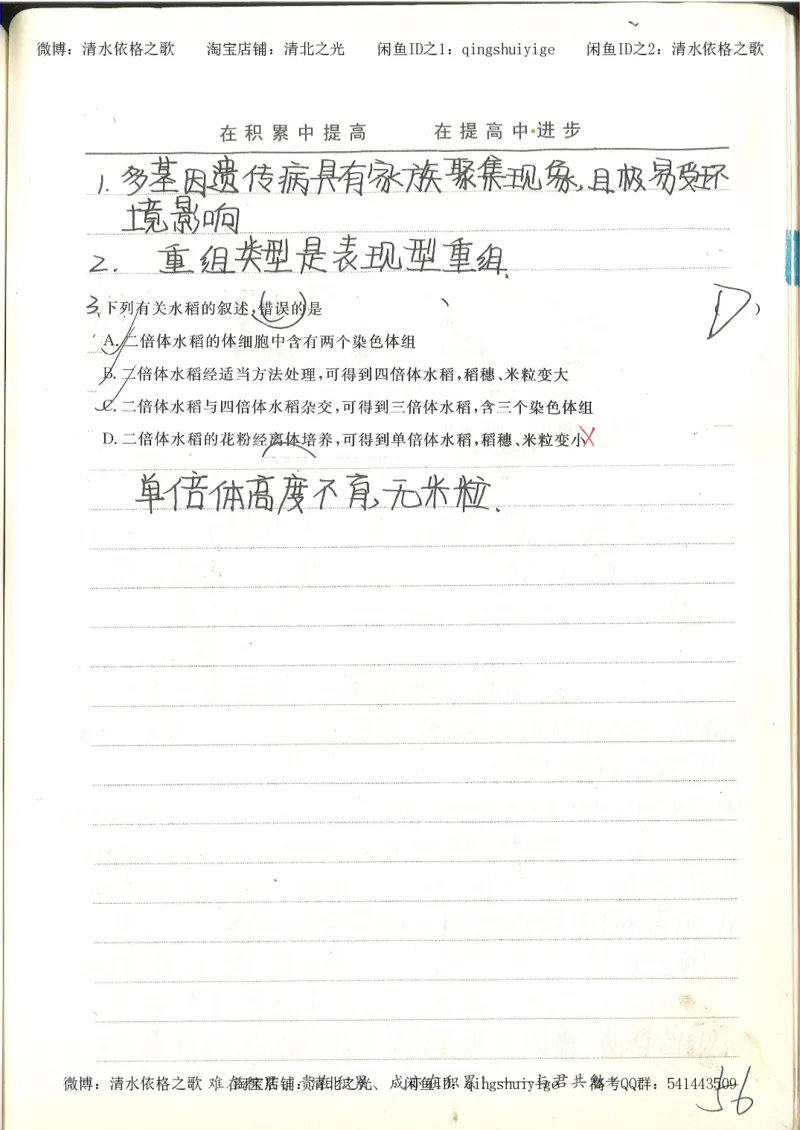 微博：清水依格之歌 淘宝店铺：清北之光 闲鱼ID之1：qingshuiyige 闲鱼ID之2：清水依格之歌
在积累中提高 在提高中·进步
1. 多基因遗传病具有家族聚集现象,且极易受环
境影响
2. 重组类型是表现型重组.
3.下列有关水稻的叙述,错误的是 ( D )
A.二倍体水稻的体细胞中含有两个染色体组
B.二倍体水稻经适当方法处理,可得到四倍体水稻,稻穗、米粒变大
C.二倍体水稻与四倍体水稻杂交,可得到三倍体水稻,含三个染色体组
D.二倍体水稻的花粉经离体培养,可得到单倍体水稻,稻穗、米粒变小
单倍体高度不育,无米粒.
微博：清水依格之歌 淘宝店铺：清北之光 闲鱼ID：qingshuiyige 高考QQ群：541443509
56